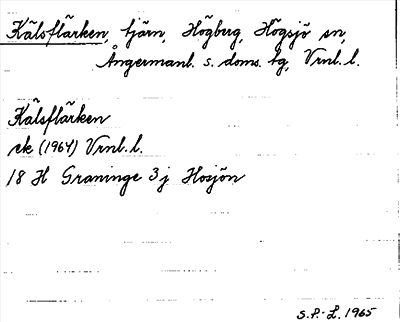 Kälsflärken, tjärn, Högberg, Högsjö sn,
Ångermanl. s. doms. tg, Vrnl. l.
Kälsflärken
ek (1964) Vrnl. l.
18 H Graninge 3 j Hosjön
S.P.-L. 1965